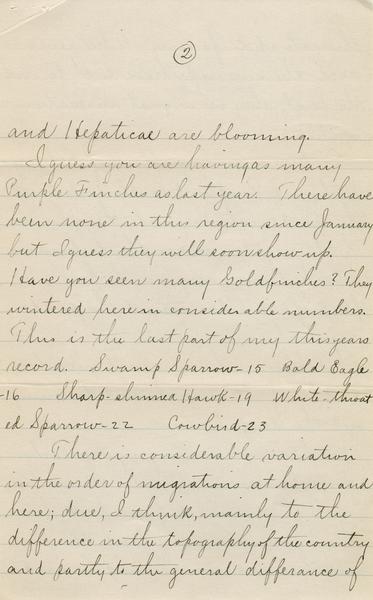 2
and Hepaticae are blooming.
I guess you are having as many
Purple Finches as last year. There have
been none in this region since January
but I guess they will soon show up.
Have you seen many Goldfinches? They
wintered here in considerable numbers.
This is the last part of my this years
record. Swamp Sparrow-15 Bald Eagle
-16 Sharp-shinned Hawk-19 White-throat
ed Sparrow-22 Cowbird-23
There is considerable variation
in the order of migrations at home and
here; due, I think, mainly to the
difference in the topography of the country
and partly to the general differance of